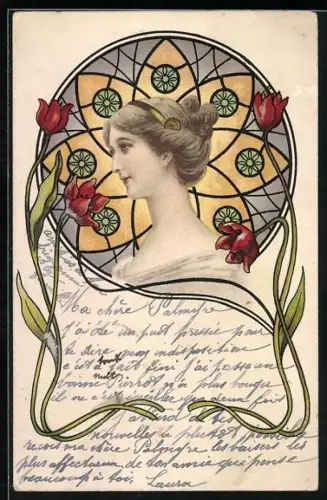 Ma chère Palmyre
j'ai été un peu pressée pour
te dire mon indisposition
c'est tout à fait fini j'ai passé une
bonne nuit Pierrot n'a plus bougé
il ne s'est éveillé que deux fois
de tes
nouvelles le plus tôt possible
reçois ma chère Palmyre les baisers les
plus affectueux de ton amie qui pense
beaucoup à toi. Laura